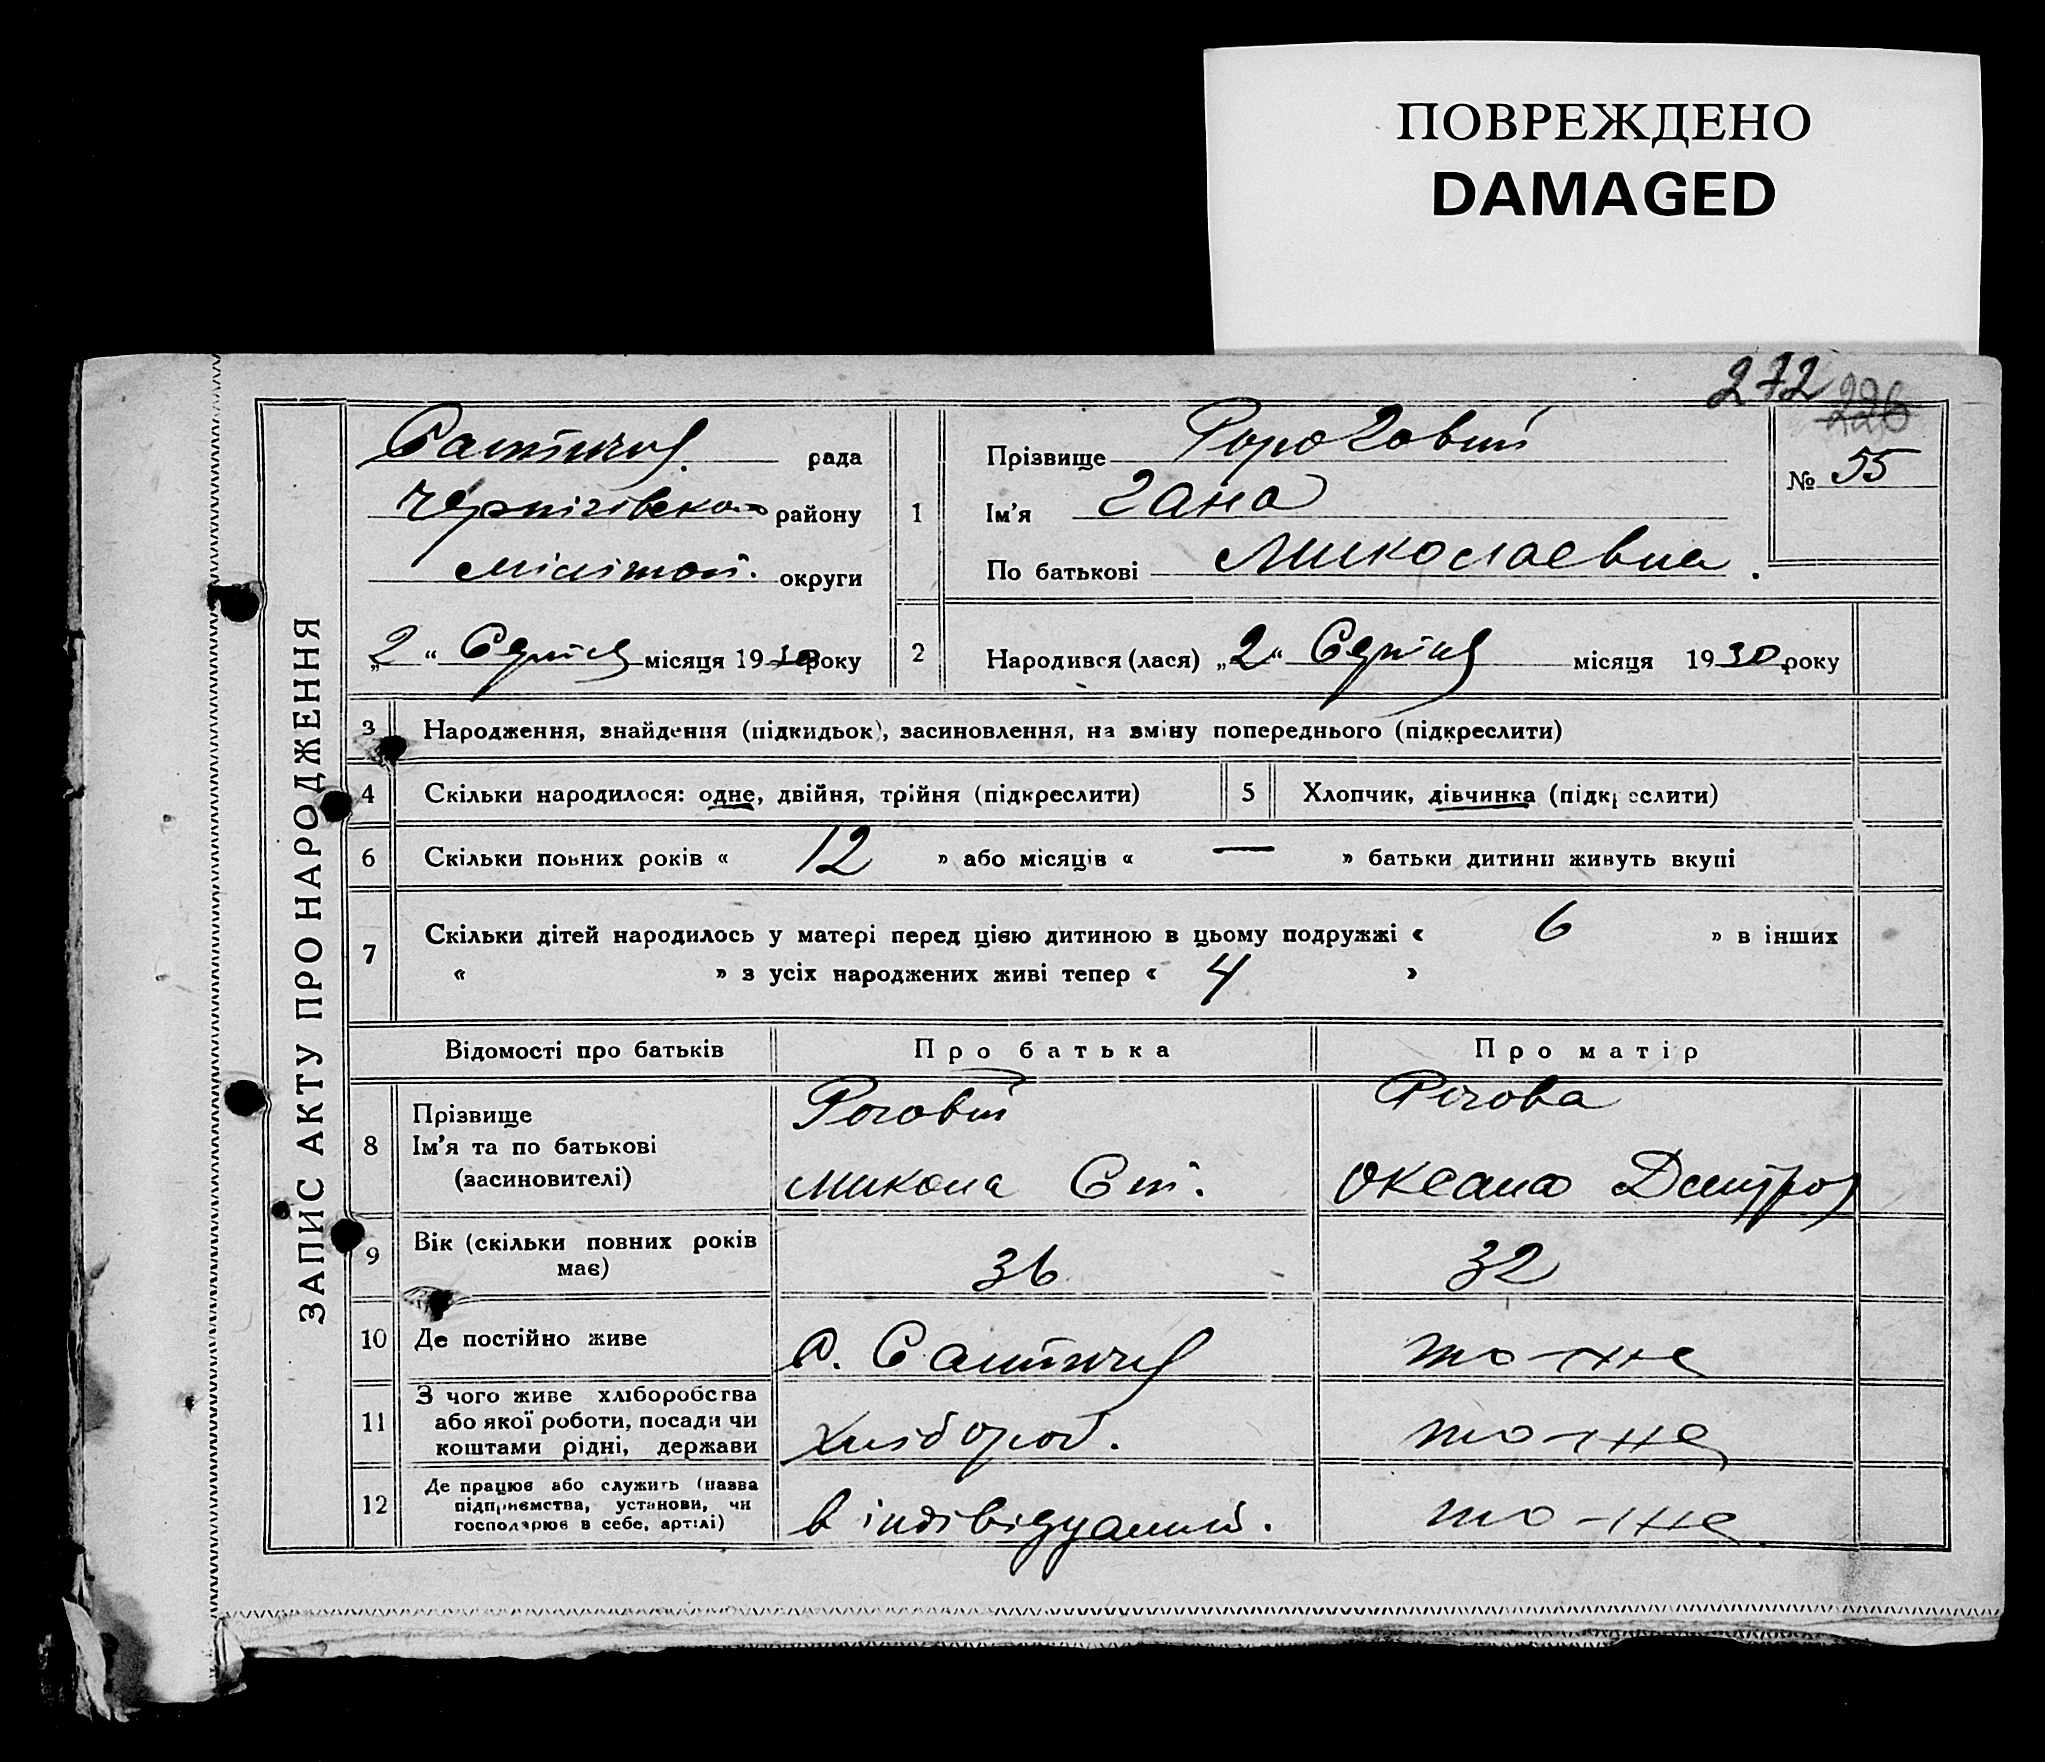 ПОВРЕЖДЕНО
DAMAGED
272 226
ЗАПИС АКТУ ПРО НАРОДЖЕННЯ
рада
Чернігівського району
округи
„2“ Серпня місяця 1930 року
1
Прізвище
Ім'я Гана
По батькові Миколаевна .
№ 55
2 Народився (лася) „2“ Серпня місяця 1930 року
3 Народження, знайдення (підкидьок), засиновлення, на зміну попереднього (підкреслити)
4 Скільки народилося: одне, двійня, трійня (підкреслити)
5 Хлопчик, дівчинка (підкреслити)
6 Скільки повних років « 12 » або місяців « — » батьки дитини живуть вкупі
7 Скільки дітей народилось у матері перед цією дитиною в цьому подружжі « 6 » в інших
« » з усіх народжених живі тепер « 4 »
Відомості про батьків Про батька Про матір
8 Прізвище Роговий Рогова
Ім'я та по батькові
(засиновителі) Микола Ст. Оксана Дмитро
9 Вік (скільки повних років
має) 36 32
10 Де постійно живе с. то-же
11 З чого живе хліборобства
або якої роботи, посади чи
коштами рідні, держави хлібороб. то-же
12 Де працює або служить (назва
підприємства, установи, чи
господарює в себе, артілі) в індівідуальний. то-же